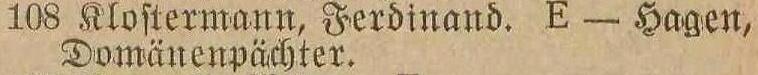 108 Kloſtermann, Ferdinand. E — Hagen,
Domänenpächter.